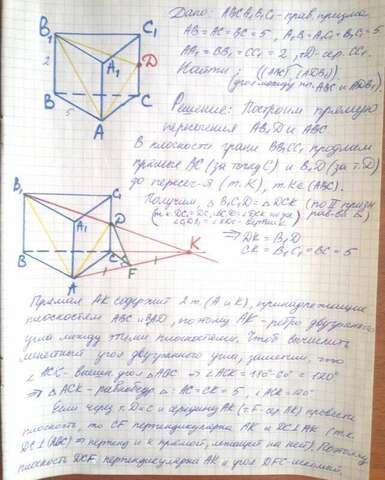 Дано: ABCA₁B₁C₁ - прав. призма
AB = AC = BC = 5, A₁B₁ = A₁C₁ = B₁C₁ = 5
AA₁ = BB₁ = CC₁ = 2, D - сер. CC₁
Найти:
(угол между пл. ABC и ADB₁)
Решение: Построим прямую
пересечения AB₁D и ABC
В плоскости грани BB₁CC₁ продлим
прямые BC (за точку C) и B₁D (за т. D)
до пересеч-я (т. K), т. K∈(ABC).
Получим, △B₁C₁D = △DCK (по II призн.
рав-ва △)
⇒ DK = B₁D
CK = B₁C₁ = BC = 5
B₁
C₁
A₁
D
2
B
C
5
A
B₁
C₁
A₁
D
B
C
K
A
F
Прямая AK содержит 2 т. (A и K), принадлежащие
плоскостям ABC и B₁AD, поэтому AK - ребро двугранного
угла между этими плоскостями. Чтоб вычислить
линейный угол двугранного угла, заметим, что
∠ACK - внешн. угол △ABC ⇒ ∠ACK = 180° - 60° = 120°
⇒ △ACK - равнобедр. AC = CK = 5, ∠ACK = 120°
Если через т. D и C и середину AK (т. F - сер. AK) провести
плоскость, то CF перпендикулярна AK и DC⊥AK (т.к.
DC⊥(ABC) ⇒ перпенд. и к прямой, лежащей на ней). Поэтому
плоскость DCF перпендикулярна AK и угол DFC - искомый.